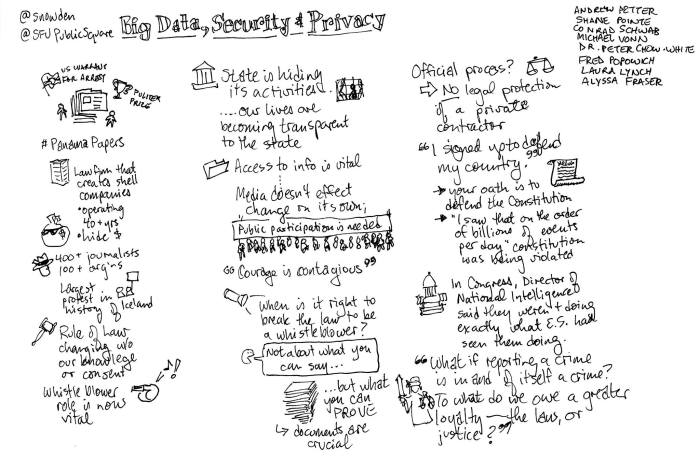 @snowden
@SFUPublicSquare
Big Data, Security & Privacy
ANDREW PETTER
SHANE POINTE
CONRAD SCHWAB
MICHAEL VONN
DR. PETER CHOW-WHITE
FRED POPOWICH
LAURA LYNCH
ALYSSA FRASER
US WARRANT
FOR ARREST
PULITZER
PRIZE
# Panama Papers
Law firm that
creates shell
companies
• operating
40+ yrs
• hide $
400+ journalists
100+ orgins
Largest
protest in
history of Iceland
Rule of Law
changing w/o
our knowlege
or consent
Whistle blower
role is now
vital
State is hiding
its activities...
....our lives are
becoming transparent
to the state
Access to info is vital
Media doesn't effect
change on its own;
Public participation is needed
"Courage is contagious"
When is it right to
break the law to be
a whistleblower?
Not about what you
can say...
...but what
you can
PROVE
↳ documents are
crucial
Official process?
⇨ No legal protection
if a private
contractor
"I signed up to defend
my country."
→ your oath is to
defend the Constitution
→ "I saw that on the order
of billions of events
per day" constitution
was being violated
In Congress, Director of
National Intelligence
said they weren't doing
exactly what E.S. had
seen them doing.
"What if reporting a crime
is in and of itself a crime?
To what do we owe a greater
loyalty — the law, or
justice?"